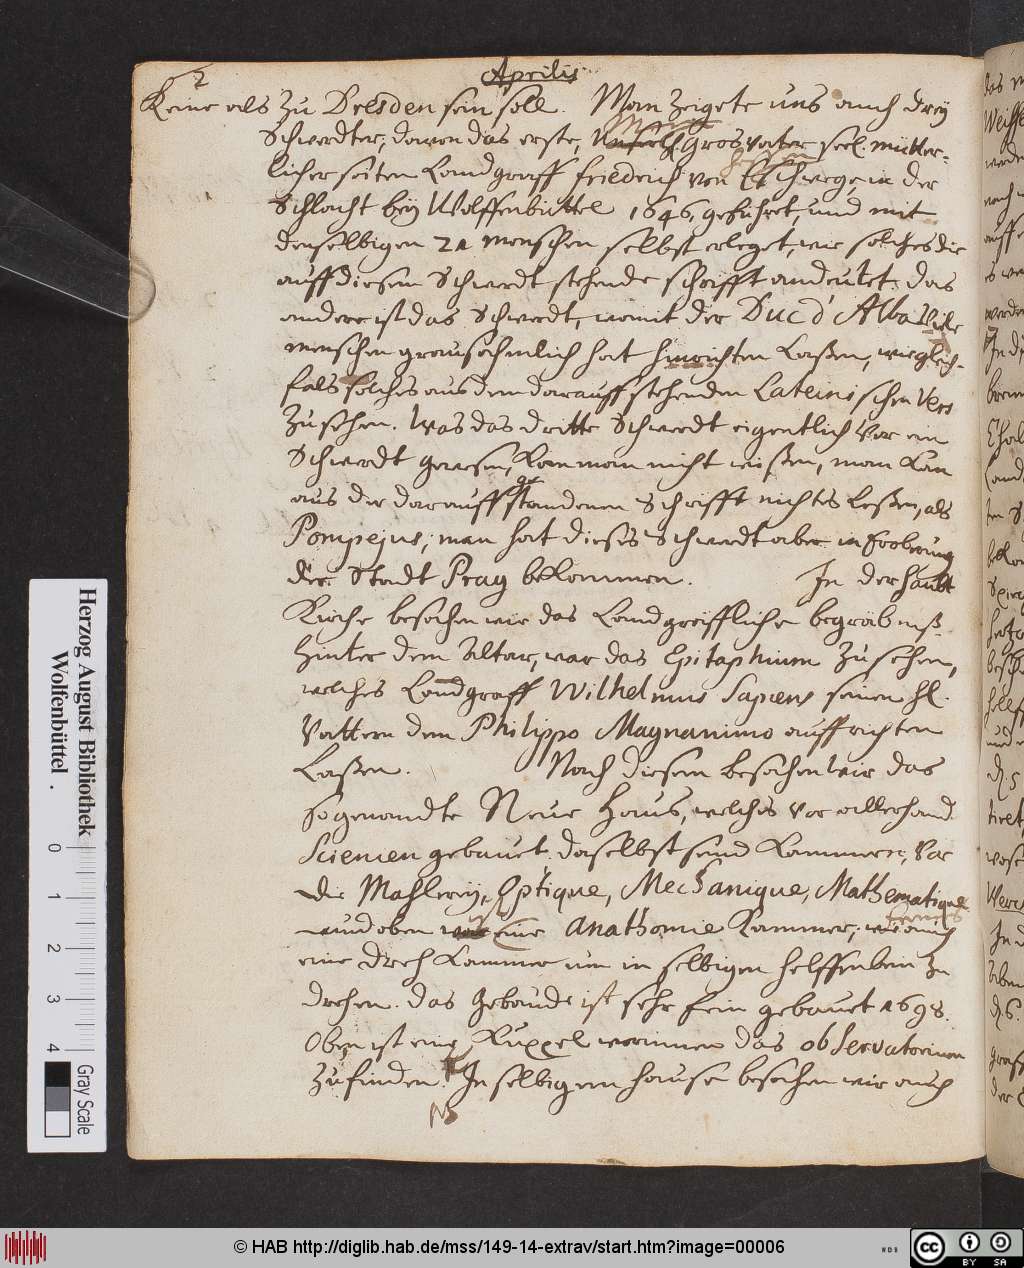 2
Aprilis
Keine als zu Dresden sein soll. Man zeigete uns auch drey
Schwerdter, davon das erste, Gros Vater seel. mütter-
licher seiten Landgraff Friedrich von Eschwege, in der
Schlacht bey Wolffenbüttel 1646, geführet, und mit
denselbigen 21 menschen selbst erleget, wie solches die
auff diesem Schwerdt stehende schrifft andeutet. das
andere ist das Schwerdt, womit der Duc d'Alba Viele
menschen grausahmlich hat hinrichten Laßen, wie gleich-
fals solches aus dem darauff stehenden Lateinischen Vers
Zu sehen. Was das dritte Schwerdt eigentlich Vor ein
Schwerdt gewesen, kan man nicht wißen, man kan
aus der darauff standenen Schrifft nichts Leßen, als
Pompejus, man hat dieses Schwerdt aber in Eroberung
der Stadt Prag bekommen. In der haubt
Kirche besahen wir das Landgräffliche begräbniß
hinter dem Altar, war das Epitaphium zu sehen,
welches Landgraff Wilhelmus Sapiens seinen hl.
Vattern dem Philippo Magnanimo auffrichten
Laßen. Nach diesem besahen wir das
so genandte Neue Haus, welches Vor allerhand
Scienien gebauet. daselbst seind Kammern, Vor
die Mahlerey, Optique, Mechanique, Mathematique
und oben ist eine Anathomie Kammer, wie auch
eine Dreh Kammer um in selbigen helffenbein Zu
drehen. das Gebäude ist sehr fein gebauet 1698.
Oben ist eine Kuppel worinnen das observatorium
Zu finden. In selbigem hause besahen wir auch
NB
Herzog August Bibliothek
Wolfenbüttel
0 1 2 3 4
Gray Scale
© HAB http://diglib.hab.de/mss/149-14-extrav/start.htm?image=00006
WDB
cc BY SA